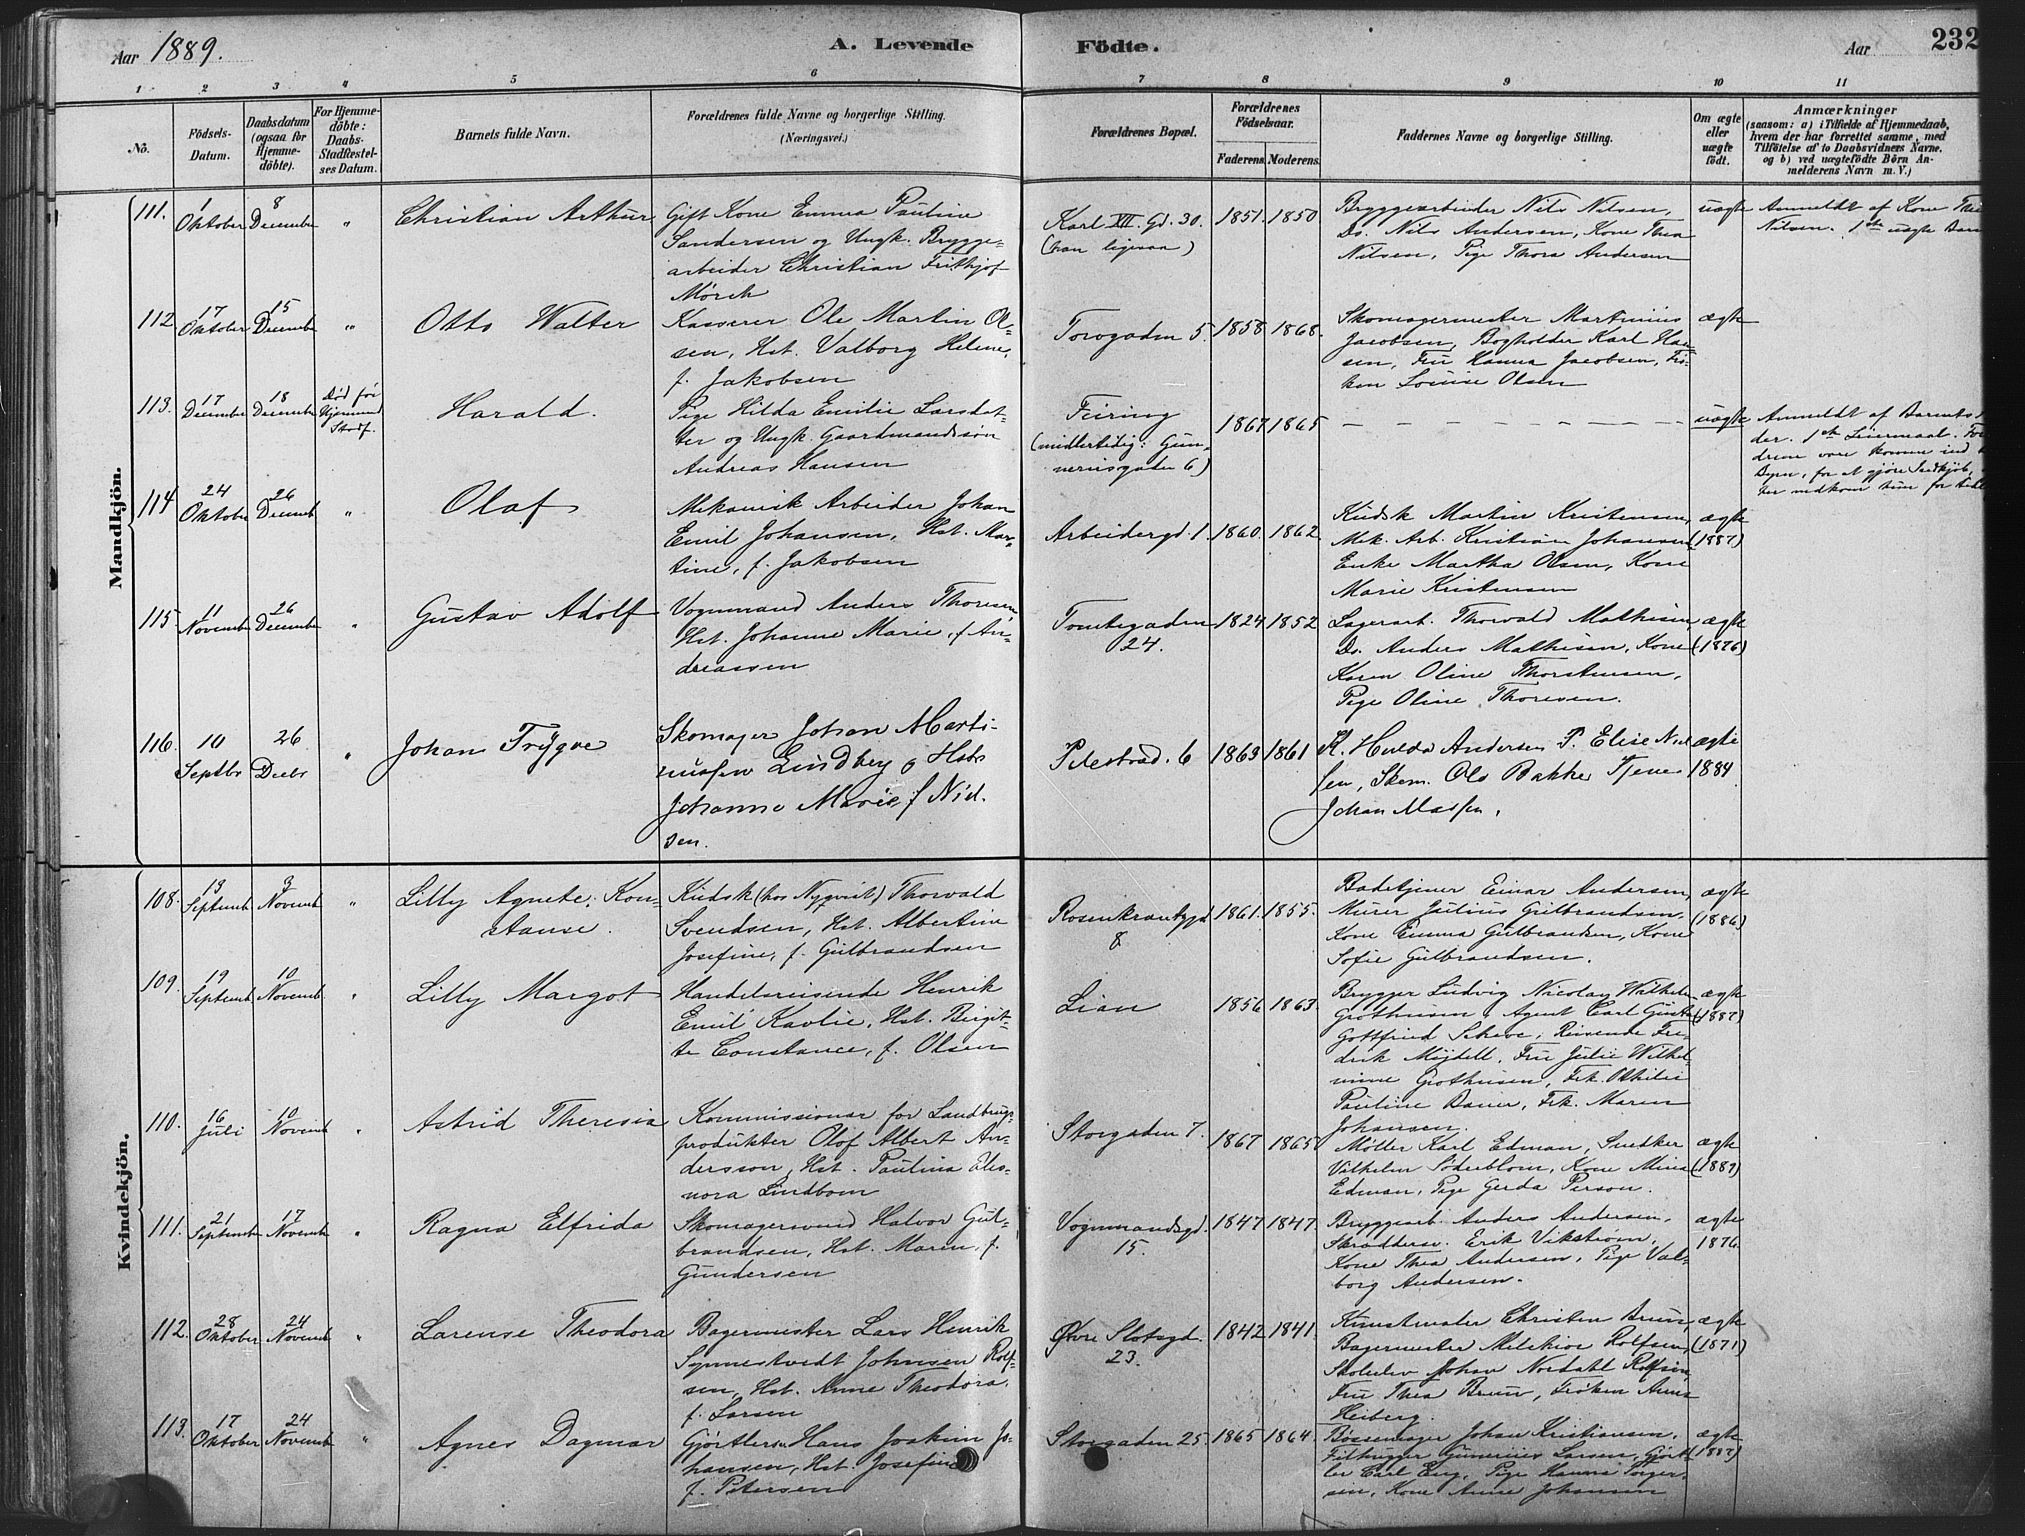 Aar 1889.
A. Levende Födte.
Aar
232
1 2 3 4 5 6 7 8 9 10 11
No.
Födsels-Datum.
Daabsdatum (ogsaa for Hjemmedöbte).
For Hjemmedöbte: Daabs-Stadfæstelses Datum.
Barnets fulde Navn.
Forældrenes fulde Navne og borgerlige Stilling. (Næringsvei.)
Forældrenes Bopæl.
Forældrenes Födselsaar.
Faderens. Moderens.
Faddernes Navne og borgerlige Stilling.
Om ægte eller uægte födt.
Anmærkninger
(saasom: a) i Tilfælde af Hjemmedaab, hvem der har forrettet samme, med Tilföielse af to Daabsvidners Navne, og b) ved uægtefödte Börn Anmelderens Navn m. V.)
Mandkjön.
111. 1 Oktober 8 December " Christian Arthur
Gift Kone Emma Pauline
Sandersen og Ungk. Brygge-
arbeider Christian Frithjof
Mørch
Karl XII Gd. 30.
(han ligesaa)
1851. 1850
Bryggearbeider Nils Nilsen,
Do. Nils Andersen, Kone Thea
Nilsen, Pige Thora Andersen
uægte
Anmeldt af Kone Thea
Nilsen. 1ste uægte Barn
112 17 Oktober 15 December " Otto Walter
Kasserer Ole Martin Ol-
sen, Hst. Valborg Helene,
f. Jakobsen
Torvgaden 5. 1858 1868.
Skomagermester Martinius
Jacobsen, Bogholder Karl Han-
sen, Fru Hanna Jacobsen, Frø-
ken Louise Olsen
ægte
113. 17 December 18 December Død før Hjemmed. Stadf. Harald.
Pige Hilda Emilie Larsdat-
ter og Ungk. Gaardmandssøn
Andreas Hansen
Feiring
(midlertidig: Gun-
nerusgaden 6)
1867 1865
uægte
Anmeldt af Barnets
der. 1ste Leiermaal.
drene vare komne ind
Byen, for at gjøre Indkjøb,
114 24 Oktober 26 Decemb " Olaf
Mekanisk Arbeider Johan
Emil Johansen, Hst. Mar-
tine, f. Jakobsen
Arbeidergd. 1. 1860. 1862.
Kudsk Martin Kristensen,
Mek. Arb. Kristian Johansen
Enke Martha Olsen, Kone
Marie Kristensen
ægte
(1887)
115 11 November 26 December " Gustav Adolf
Vognmand Anders Thoresen
Hst. Johanne Marie, f. An-
dreassen
Tomtegaden
24.
1824 1852
Lagerarb. Thorvald Mathisen,
Do. Anders Mathisen, Kone
Karen Oline Thorstensen,
Pige Oline Thoresen.
ægte
(1876)
116. 10 Septbr 26 Decbr " Johan Trÿgve
Skomager Johan Marti-
niussen Lindberg & Hstr
Johanne Marie f Niel-
sen.
Pilestræd. 6 1863 1861
K. Hulda Andersen P. Elise Niel
sen, Skom. Ole Bakke Tjener
Johan Massen.
ægte
1884
Kvindekjön.
108. 13 Septemb 3 Novemb " Lilly Agnete Kon-
stanse.
Kudsk (hos Nyqvist) Thorvald
Svendsen, Hst. Albertine
Josefine, f. Gulbrandsen
Rosenkrantzgd
8
1861. 1855.
Badetjener Einar Andersen,
Murer Julius Gulbrandsen.
Kone Emma Gulbrandsen, Kone
Sofie Gulbrandsen.
ægte
(1886)
109. 19 Septemb 10 Novemb " Lilly Margot
Handelsreisende Henrik
Emil Kavlie, Hst. Birgit-
te Constance, f. Olsen
Lian 1856 1863.
Brygger Ludvig Nicolay Wilhelm
Grothusen, Agent Carl Gustav
Gottfried Scheve, Reisende Fre-
drik Mijdell, Fru Julie Wilhel-
mine Grothusen, Frk. Othilie
Pauline Bauer, Frk. Maren
Johansen.
ægte
(1887)
110. 16 Juli 10 Novemb " Astrid Theresia
Kommissionær for Landbrugs-
produkter Olof Albert An-
dersson, Hst. Paulina Eleo-
nora Lindbom
Storgaden 7. 1867 1865
Møller Karl Edman, Snedker
Vilhelm Söderblom, Kone Mina
Edman, Pige Gerda Person.
ægte
(1889)
111. 21 Septembe 17 Novemb " Ragna Elfrida
Skomagersvend Halvor Gul-
brandsen, Hst. Maren, f.
Gundersen
Vognmandsgd.
15.
1847 1847
Bryggearb. Anders Andersen,
Skræddersv. Erik Vikstrøm,
Kone Thea Andersen, Pige Val-
borg Andersen.
ægte
1876.
112. 28 Oktober 24 Novemb " Larense Theodora
Bagermester Lars Henrik
Synnestvedt Johnsen Rolf-
sen, Hst. Anne Theodora,
f. Larsen
Øvre Slotsgd.
23.
1842 1841.
Kunstmaler Christen Brun,
Bagermester Melchior Rolfsen,
Skoleelev Johan Nordahl Rolfsen,
Fru Thea Brun, Frøken Anna
Heiberg.
ægte
(1871)
113. 17 Oktober 24 Novemb " Agnes Dagmar
Gjørtlersv. Hans Joakim Jo-
hansen, Hst. Josefine
f. Petersen
Storgaden 25. 1865 1864.
Bøssemager Johan Kristiansen,
Filhugger Gunerius Larsen, Gjørt-
ler Carl Eng, Pige Hanna Torger-
sen, Kone Anne Johansen
ægte
(1887)